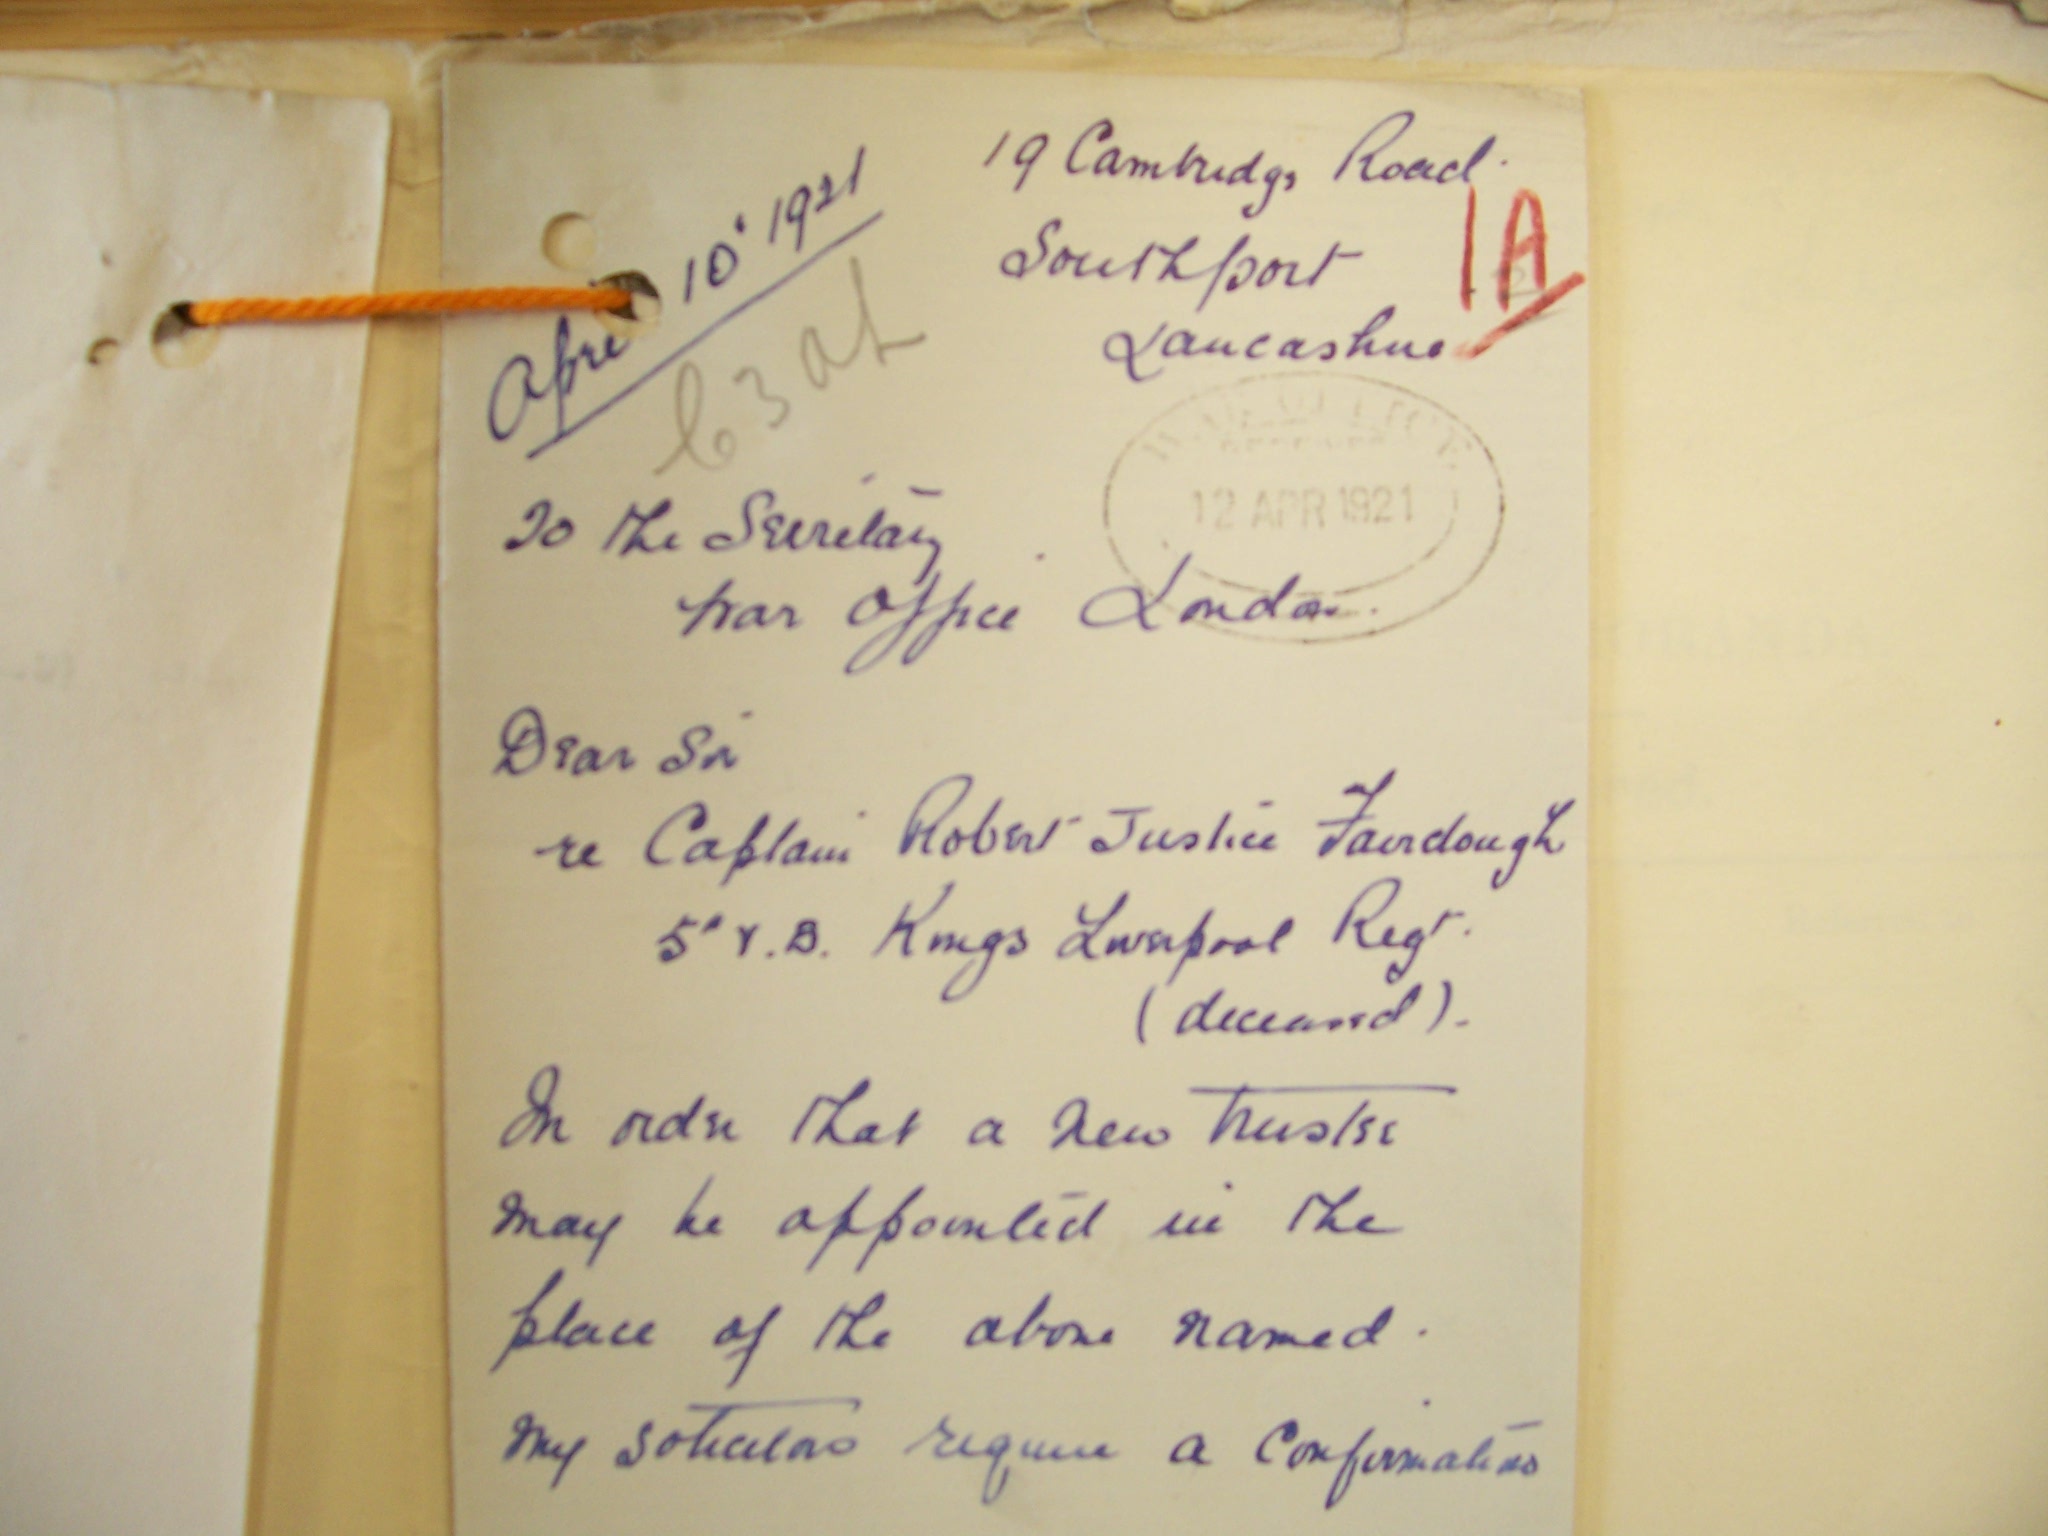 19 Cambridge Road.
1A
April 10' 1921
Southport
Lancashire
C3 at
WAR OFFICE
12 APR 1921
To the Secretary
War Office London.
Dear Sir
re Captain Robert Justice Fairclough
5" V.B. Kings Liverpool Regt.
(deceased).
In order that a new trustee
may be appointed in the
place of the above named.
my solicitors require a Confirmation